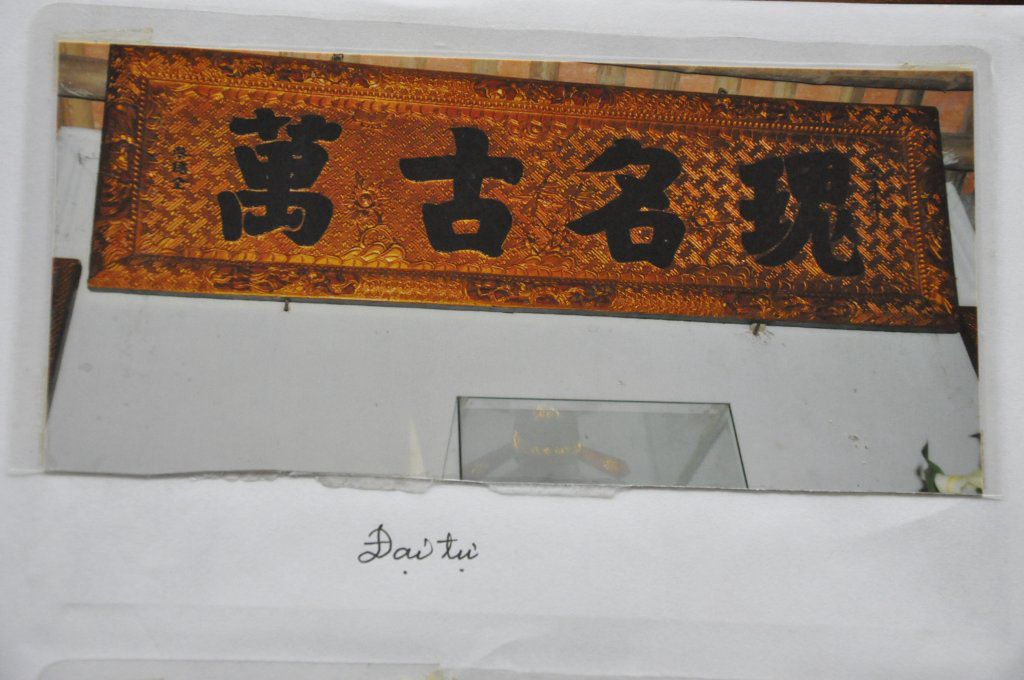 萬古名現
Đại tự